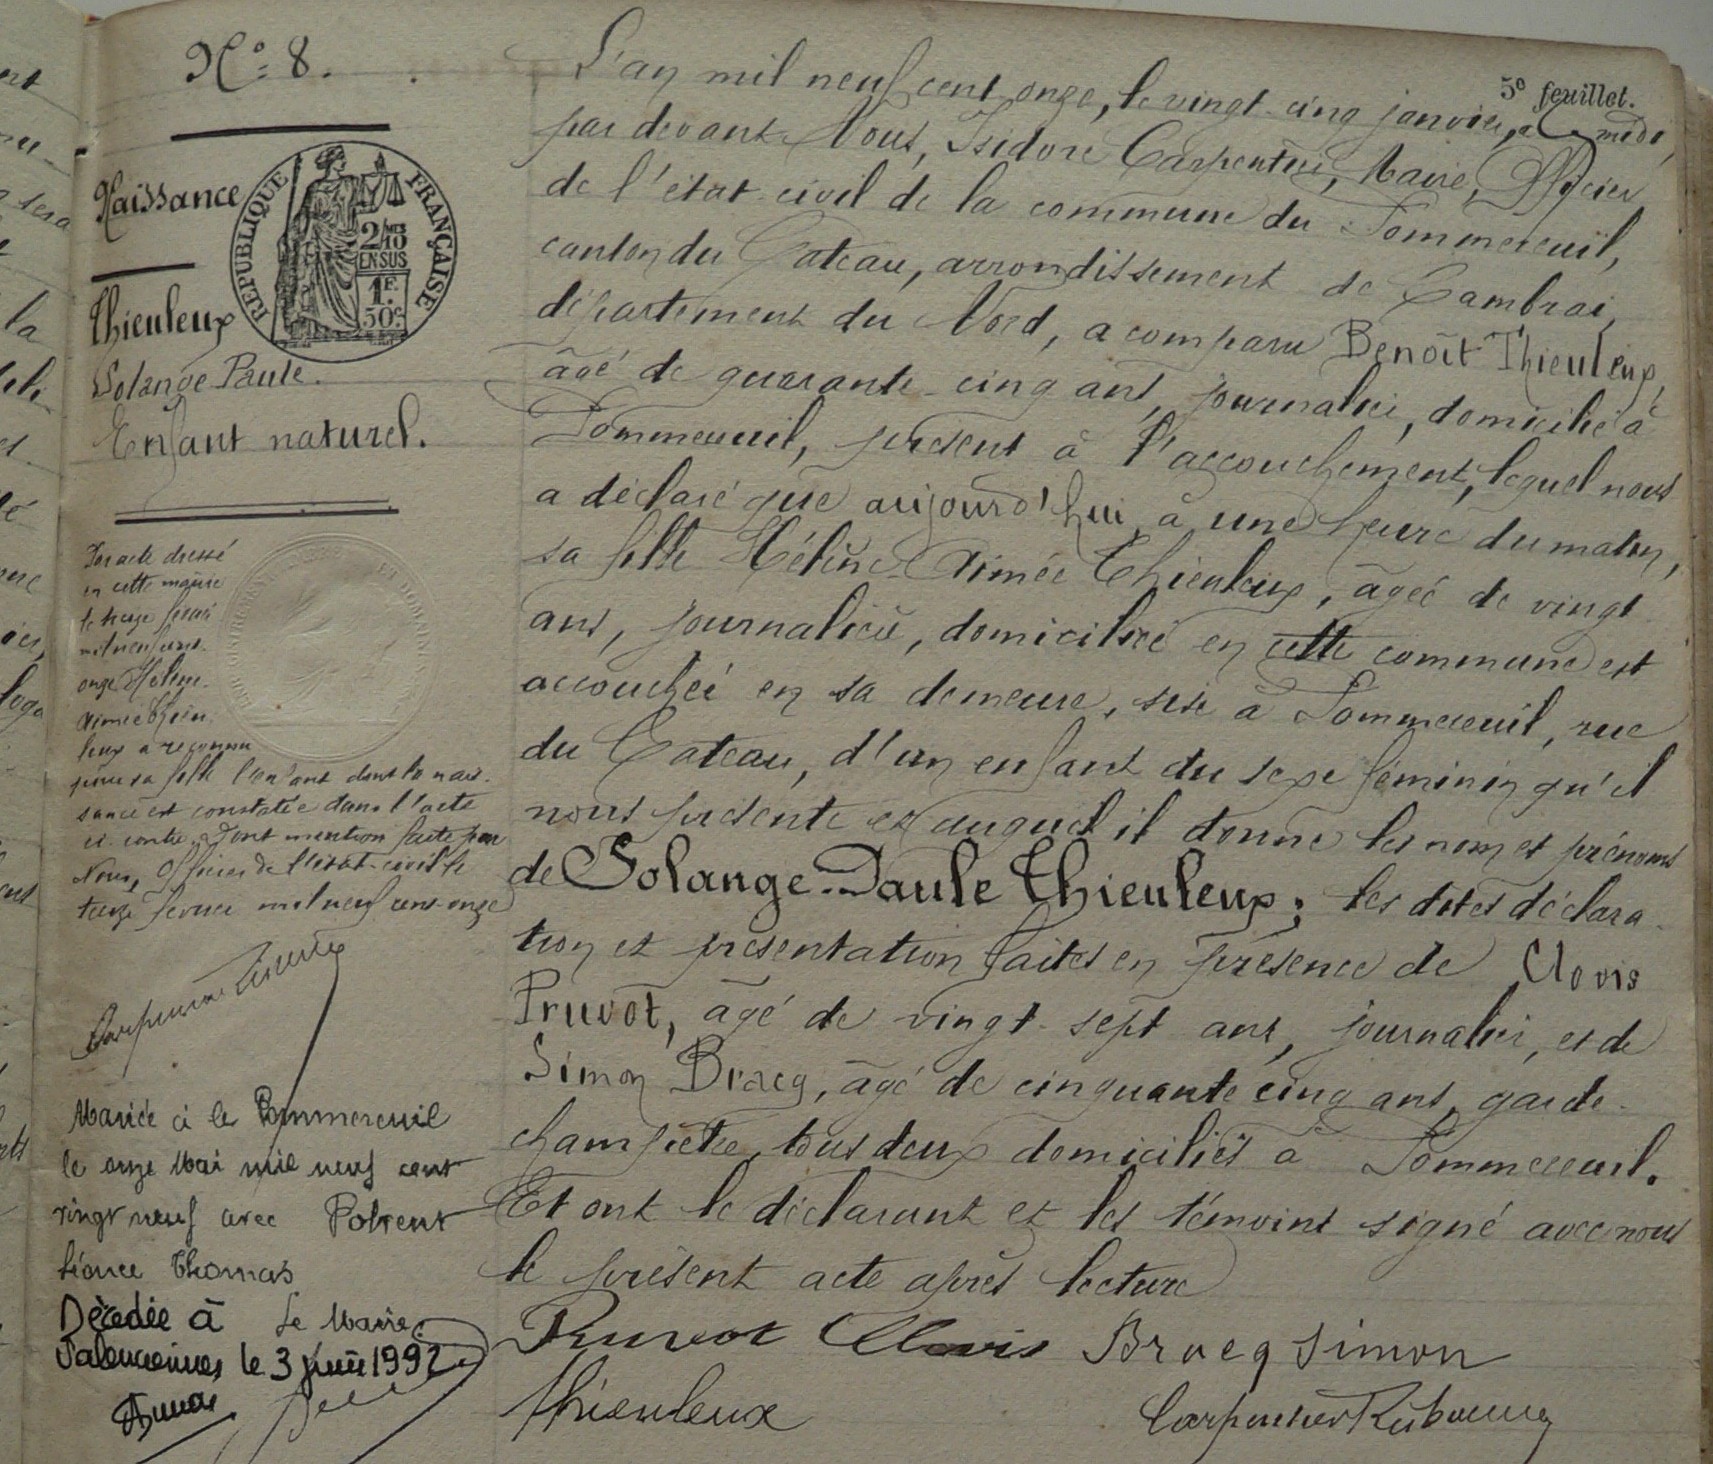 N° 8.
Naissance
REPUBLIQUE FRANÇAISE
2/10 MES
EN SUS
1 F.
50 c
Thieuleux
Solange Paule.
Enfant naturel.
Par acte dressé
en cette mairie
le treize février
mil neuf cent-
onze Hélène-
Aimée Thieu-
leux a reconnu
pour sa fille l'enfant dont la nais-
sance est constatée dans l'acte
ci-contre. Dont mention faite par
Nous, Officier de l'état-civil le
treize février mil neuf cent-onze
Mariée à le Pommereuil
le onze Mai mil neuf cent
vingt neuf avec
Thomas
Le Maire.
Décédée à
Valenciennes le 3 juin 1992
5e feuillet.
L'an mil neuf cent onze, le vingt-cinq janvier, à midi,
par devant Nous, Isidore Carpentier, Maire, Officier
de l'état-civil de la commune du Pommereuil,
canton du Cateau, arrondissement de Cambrai,
département du Nord, a comparu Benoît Thieuleux,
âgé de quarante-cinq ans, journalier, domicilié à
Pommereuil, présent à l'accouchement, lequel nous
a déclaré que aujourd'hui, à une heure du matin,
sa fille Hélène-Aimée Thieuleux, âgée de vingt
ans, journalière, domiciliée en cette commune est
accouchée en sa demeure, sise à Pommereuil, rue
du Cateau, d'un enfant du sexe féminin qu'il
nous présente et auquel il donne les nom et prénoms
de Solange-Paule Thieuleux; les dites déclara-
tion et présentation faites en présence de Clovis
Pruvot, âgé de vingt-sept ans, journalier, et de
Simon Bracq, âgé de cinquante cinq ans, garde-
champêtre, tous deux domiciliés à Pommereuil.
Et ont le déclarant et les témoins signé avec nous
le présent acte après lecture
Pruvot Clovis Bracq Simon
Thieuleux Carpentier